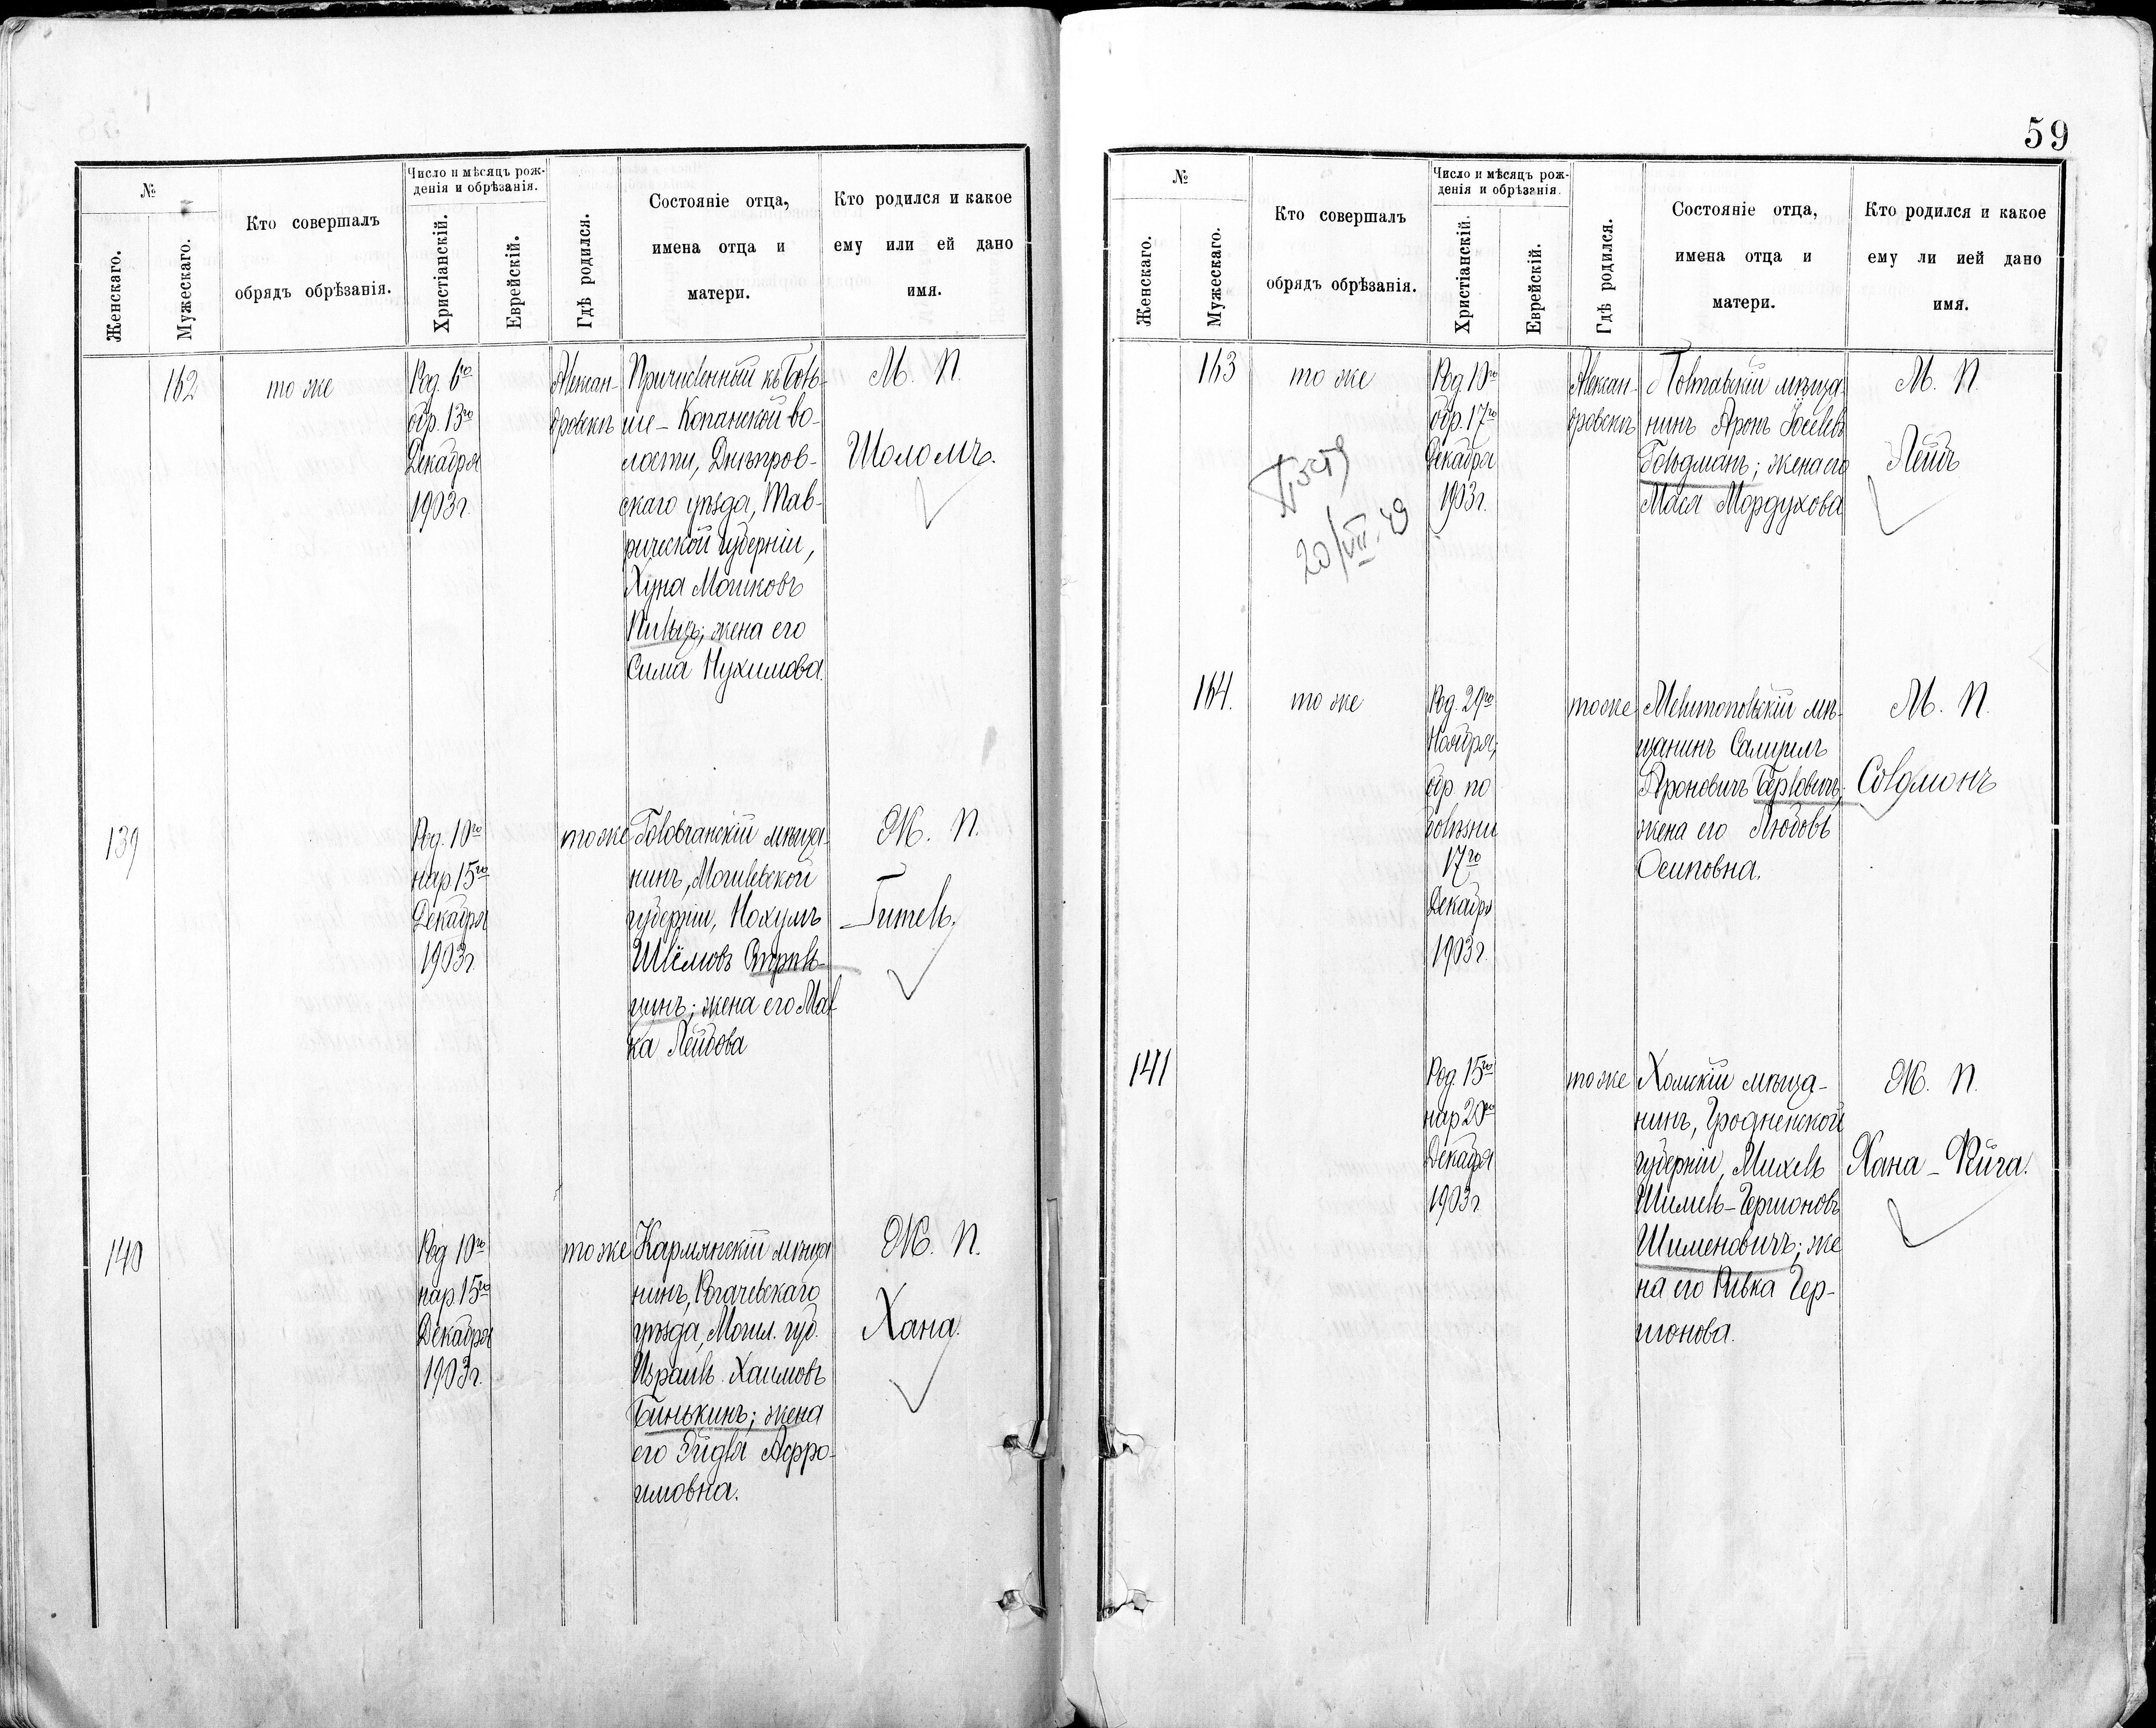 №
Женскаго.
Мужескаго.
Кто совершалъ
обрядъ обрѣзанія.
Число и мѣсяцъ рож-
денія и обрѣзанія.
Христіанскій.
Еврейскій.
Гдѣ родился.
Состояніе отца,
имена отца и
матери.
Кто родился и какое
ему или ей дано
имя.
162
то же
Род. 6го
обр. 13го
Декабря
1903 г.
Алексан-
дровскъ
Причисленный къ Боль-
ше-Копанской во-
лости, Днѣпров-
скаго уѣзда, Тав-
рической губерніи,
Хуна Мошковъ
жена его
Сима Нухимова.
М. П.
Шоломъ.
139
Род. 10го
нар 15го
Декабря
1903 г.
тоже
мѣща-
нинъ, Могилевской
губерніи, Нохумъ
Шлёмовъ
жена его Мал-
ка Лейбова
Ж. П.
Гитель.
140
Род 10го
нар. 15го
Декабря
1903 г.
тоже
Кармянскій мѣща
нинъ, Рогачевскаго
уѣзда, Могил. губ.
Израиль Хаимовъ
Банькинъ; жена
его Эйдля Афро-
имовна.
Ж. П.
Хана.
59
№
Женскаго.
Мужескаго.
Кто совершалъ
обрядъ обрѣзанія.
Число и мѣсяцъ рож-
денія и обрѣзанія.
Христіанскій.
Еврейскій.
Гдѣ родился.
Состояніе отца,
имена отца и
матери.
Кто родился и какое
ему ли ией дано
имя.
163
то же
20/VII.49
Род 10го
обр. 17го
Декабря
1903 г.
Алексан-
дровскъ
Полтавскій мѣща-
нинъ Аронъ Іоселевъ
Гольдманъ; жена его
Мася Мордухова
М. П.
Лейбъ
164.
то же
Род. 29го
Ноября,
обр по
болѣзни
17го
Декабря
1903 г.
тоже
Мелитопольскій мѣ-
щанинъ Самуилъ
Ароновичъ Берловичъ;
жена его Любовь
Осиповна.
М. П.
Соломонъ
141
Род. 15го
нар 20го
Декабря
1903 г.
тоже
Хомскій мѣща-
нинъ, Гродненской
губерніи, Михель
Шимель-Гершоновъ
Шименовичъ; же
на его Ривка Гер-
шонова.
Ж. П.
Хана-Фейга.